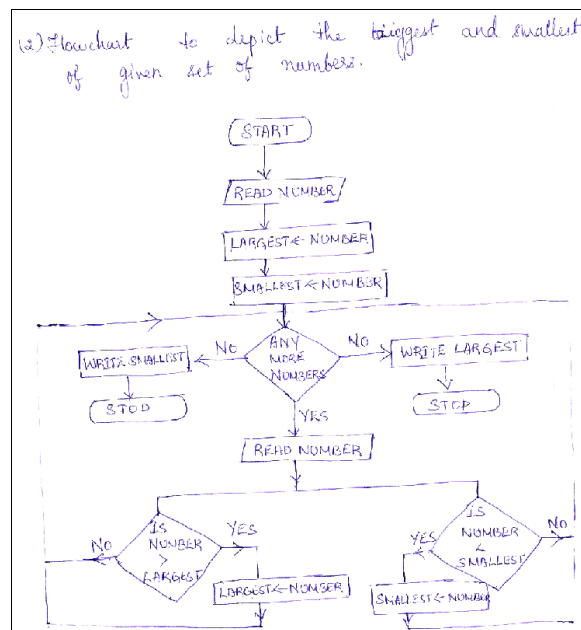 (2) Flowchart to depict the biggest and smallest
of given set of numbers.
START
READ NUMBER
LARGEST ← NUMBER
SMALLEST ← NUMBER
ANY
MORE
NUMBERS
NO
NO
WRITE SMALLEST
WRITE LARGEST
STOP
STOP
YES
READ NUMBER
IS
NUMBER
>
LARGEST
NO
YES
IS
NUMBER
<
SMALLEST
YES
NO
LARGEST ← NUMBER
SMALLEST ← NUMBER